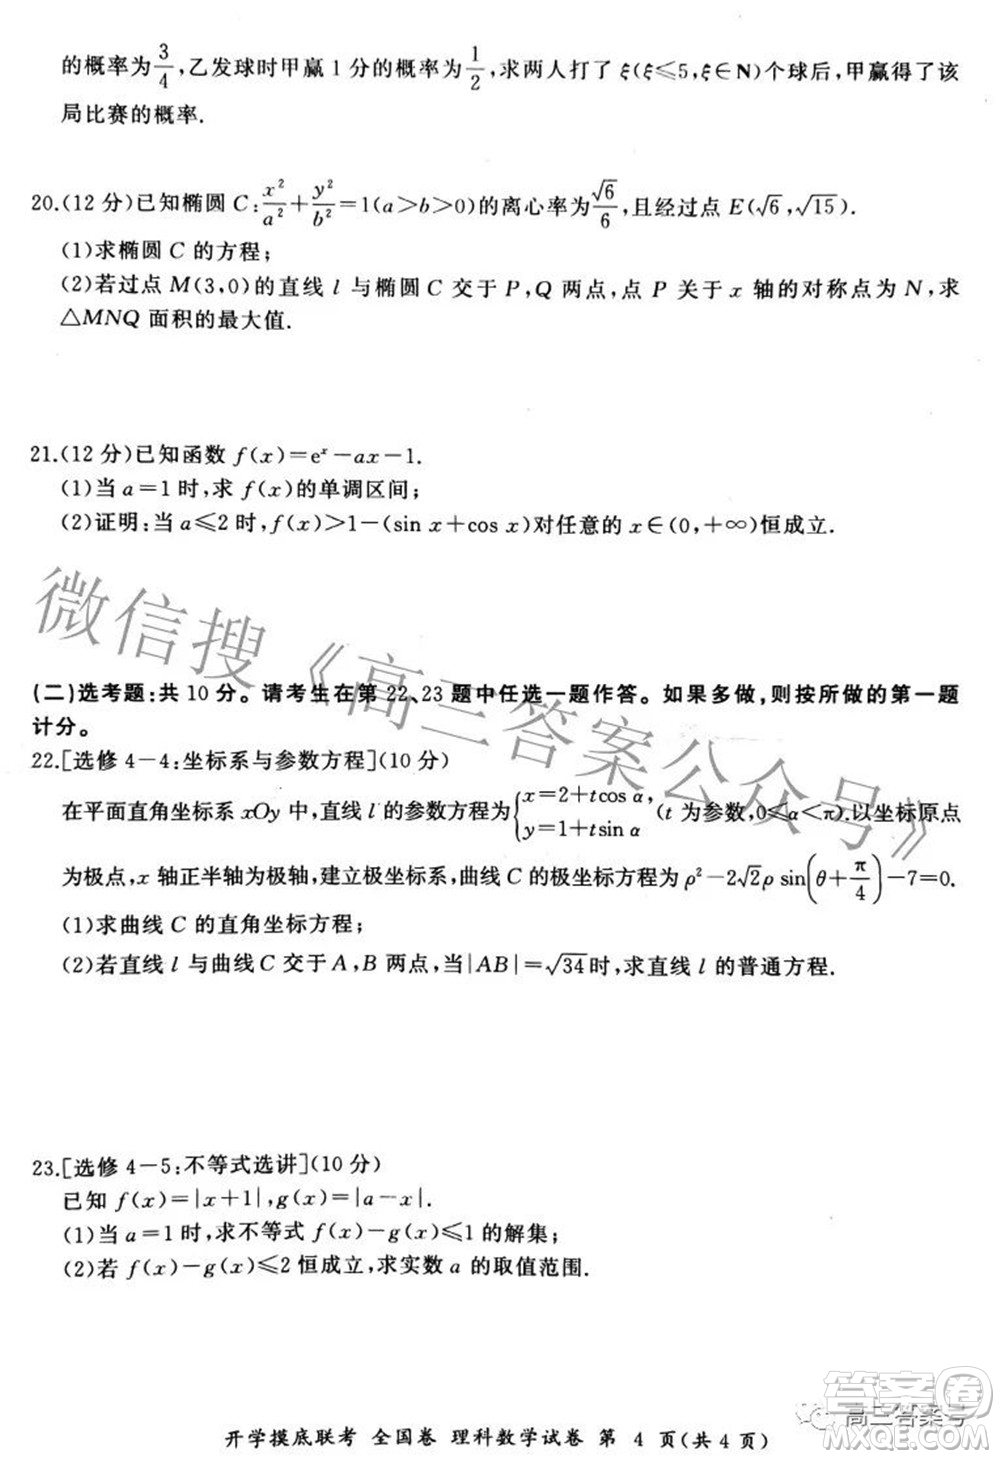 的概率为3/4,乙发球时甲赢1分的概率为1/2,求两人打了ξ(ξ≤5,ξ∈N)个球后,甲赢得了该
局比赛的概率.
20.(12分)已知椭圆C:x²/a²+y²/b²=1(a>b>0)的离心率为√6/6,且经过点E(√6,√15).
(1)求椭圆C的方程;
(2)若过点M(3,0)的直线l与椭圆C交于P,Q两点,点P关于x轴的对称点为N,求
△MNQ面积的最大值.
21.(12分)已知函数f(x)=eˣ-ax-1.
(1)当a=1时,求f(x)的单调区间;
(2)证明:当a≤2时,f(x)>1-(sin x+cos x)对任意的x∈(0,+∞)恒成立.
微信搜《高三答案公众号》
(二)选考题:共10分。请考生在第22、23题中任选一题作答。如果多做,则按所做的第一题
计分。
22.[选修4-4:坐标系与参数方程](10分)
在平面直角坐标系xOy中,直线l的参数方程为{x=2+tcos α, y=1+tsin α (t为参数,0≤α<π).以坐标原点
为极点,x轴正半轴为极轴,建立极坐标系,曲线C的极坐标方程为ρ²-2√2ρ sin(θ+π/4)-7=0.
(1)求曲线C的直角坐标方程;
(2)若直线l与曲线C交于A,B两点,当|AB|=√34时,求直线l的普通方程.
23.[选修4-5:不等式选讲](10分)
已知f(x)=|x+1|,g(x)=|a-x|.
(1)当a=1时,求不等式f(x)-g(x)≤1的解集;
(2)若f(x)-g(x)≤2恒成立,求实数a的取值范围.
答案卷
高三答案号
开学摸底联考 全国卷 理科数学试卷 第4页(共4页)